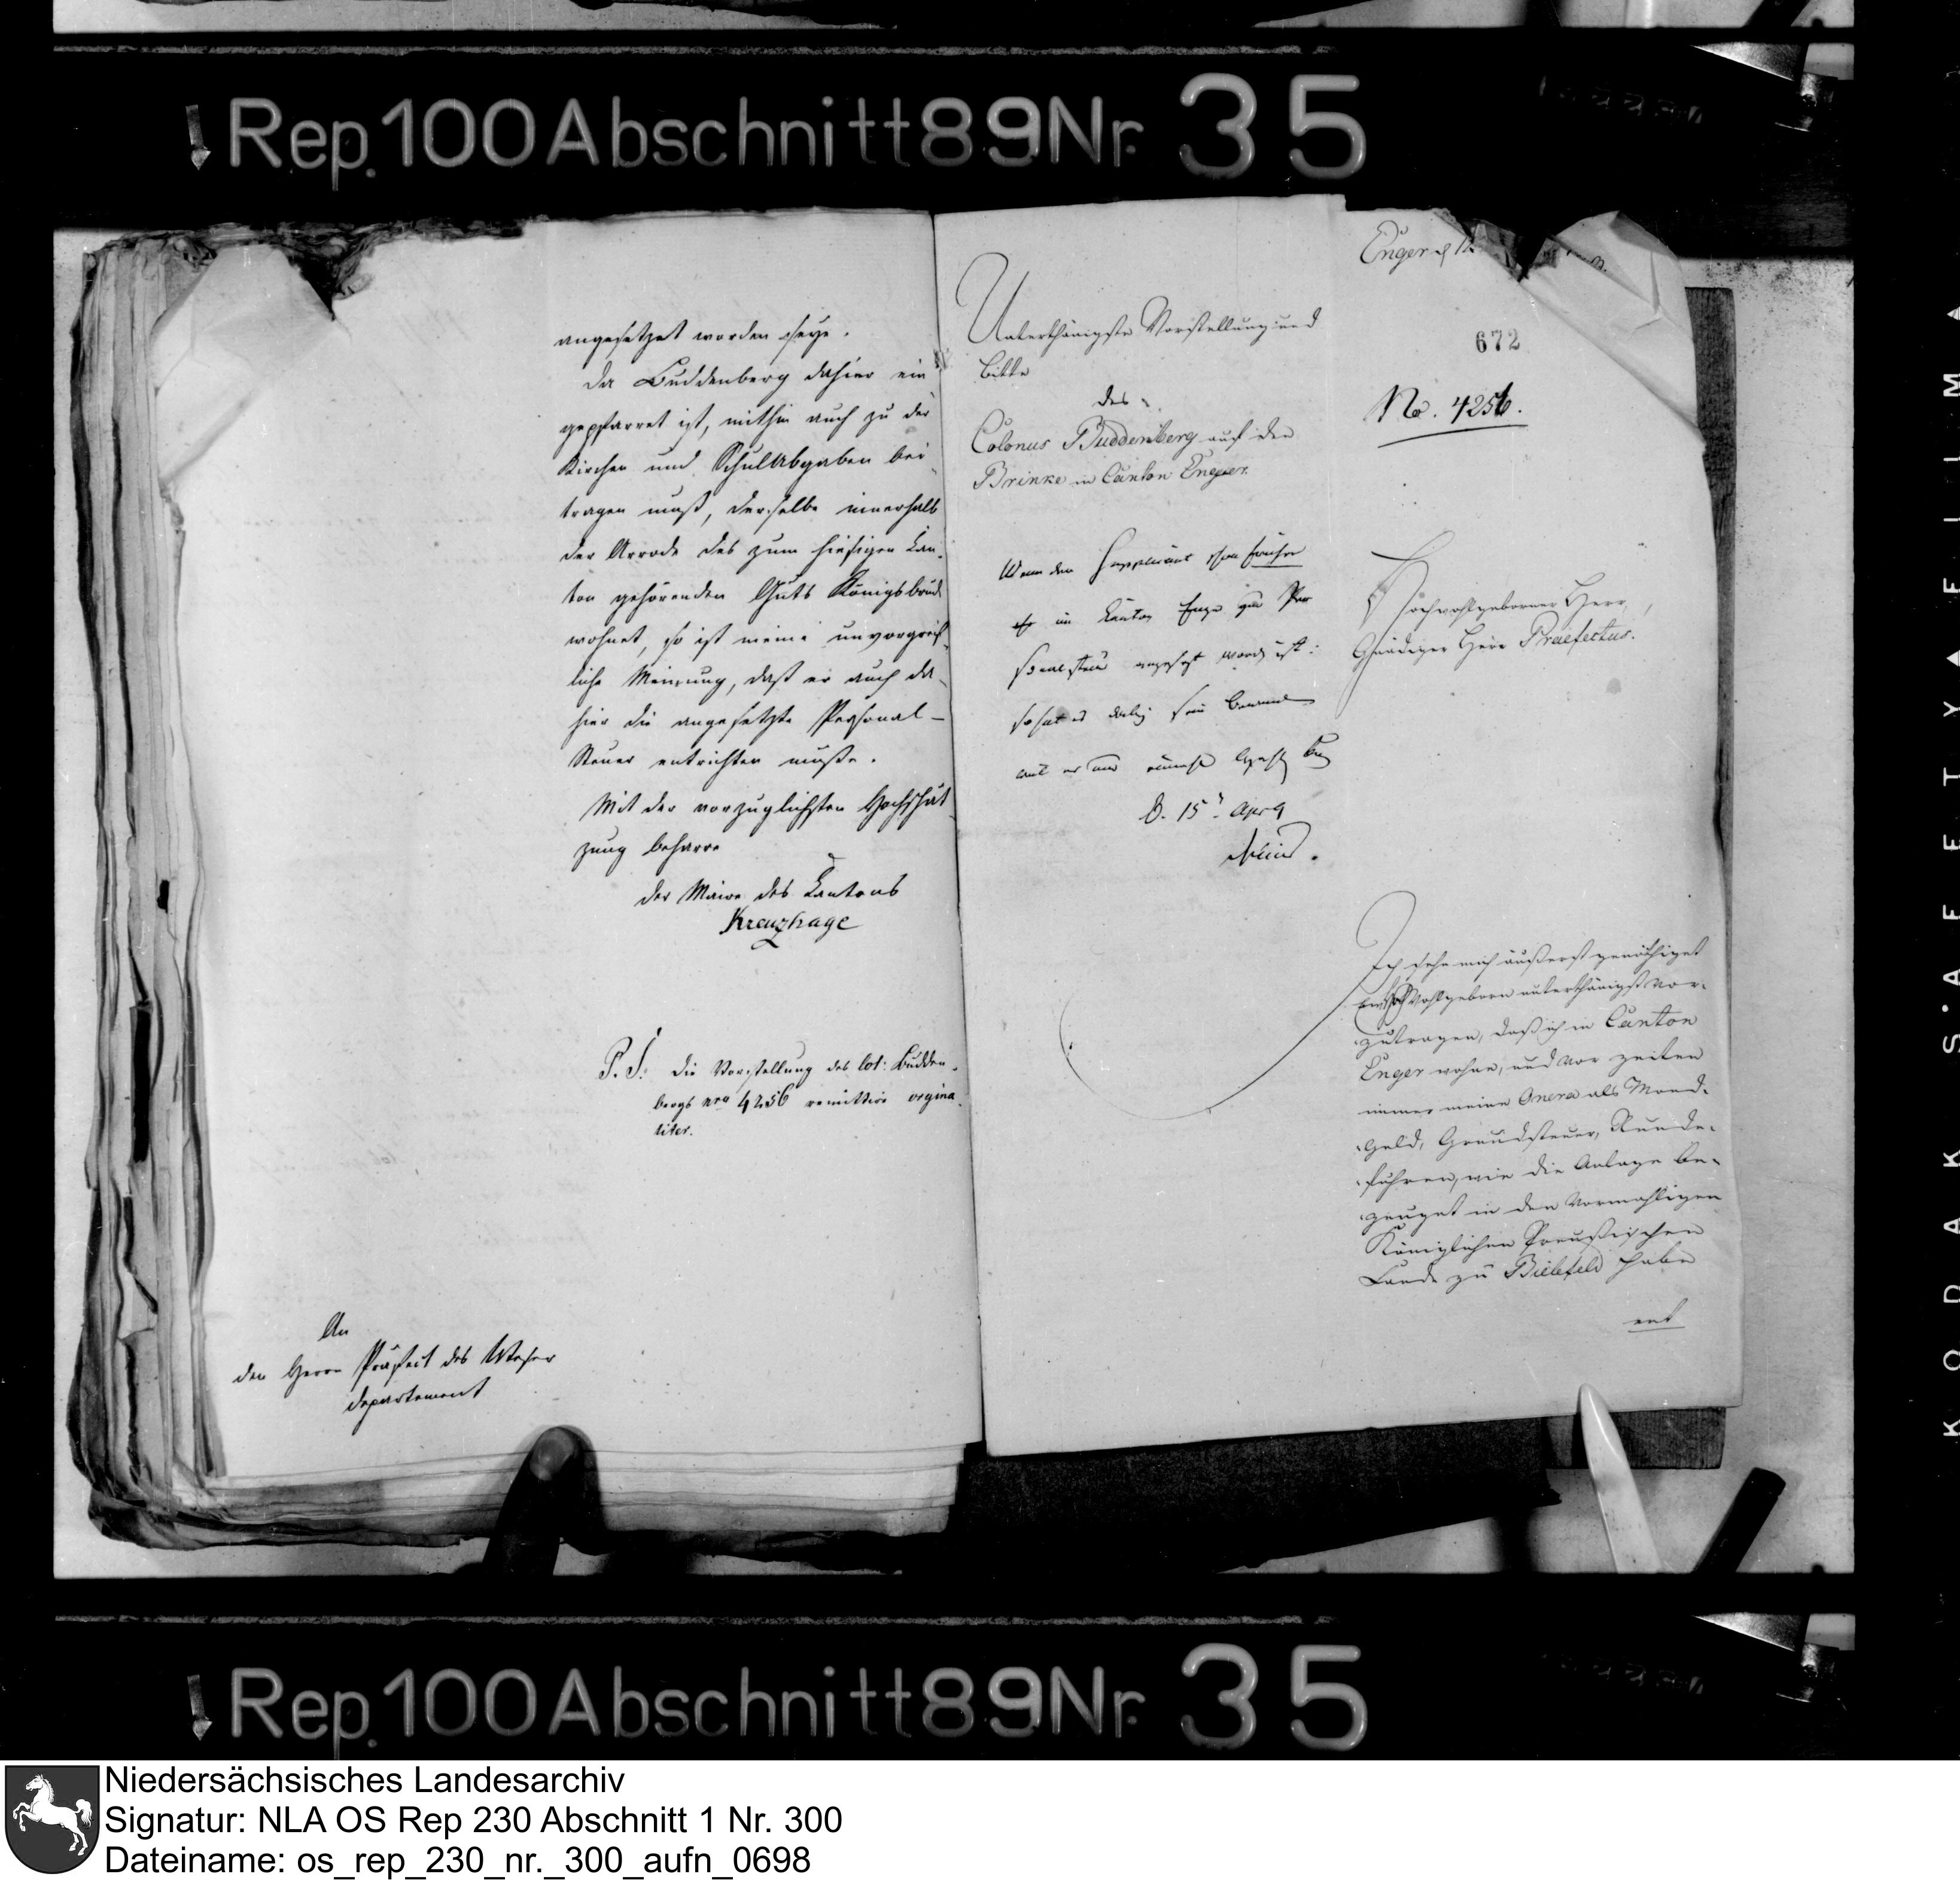 Rep. 100 Abschnitt 89 Nr. 35
angesetzet worden seye.
Da Buddenberg dahier ein
gepfarret ist, mithin auch zu der
Kirchen und Schulabgaben bei
tragen muß, derselbe innerhalb
der Arrode des zum hiesigen Kan-
ton gehörenden Guts Königsbrück
wohnet, so ist meine unvorgreif-
liche Meinung, daß er auch da-
hier die angesetzte Personal-
Steuer entrichten müße.
Mit der vorzüglichsten Hochschät
zung beharre
der Maire des Kantons
Kreuzhage
P. S. Die Vorstellung des Col: Budden-
bergs nro 4256 remittire orgina-
liter.
An
den Herrn Präfect des Weser
departement
Unterthänigste Vorstellung und
Bitte
des
Colonus Buddenberg auf den
Brinke in Canton Enger.
Wenn der Supplicant schon früher
im Canton Enger zur Per
sonalsteuer angesetzt worden ist:
so hat es dabey sein Bewenden
O. 15 Apr 9
Enger d 12
672
No. 4256.
Hochwohlgeborner Herr,
Gnädiger Herr Praefectus.
Ich sehe mich äußerst genöthiget
Ew. Hochwohlgeborn unterthänigst vor-
zutragen, daß ich in Canton
Enger wohne, und vor zeiten
immer meine Onera als Mond-
geld, Grundsteuer, Runde-
fuhren, wie die Anlage be-
zeuget in den vormahligen
Königlichen Preußischen
Lande zu Bielefeld habe
ent
Rep. 100 Abschnitt 89 Nr. 35
KODAK S'AFETY FILM
Niedersächsisches Landesarchiv
Signatur: NLA OS Rep 230 Abschnitt 1 Nr. 300
Dateiname: os_rep_230_nr._300_aufn_0698